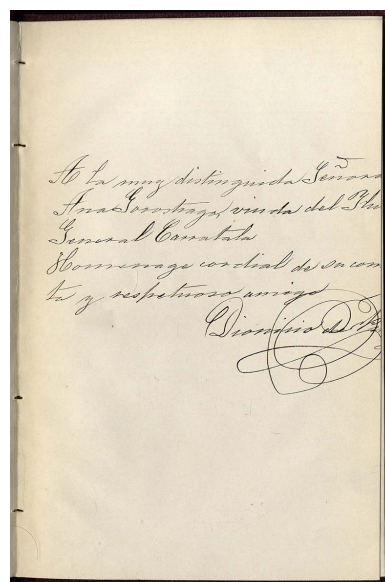 A la muy distinguida Señora
Ana Gorostiaga, viuda del
General Carratala
Homenage cordial de su
y respetuoso amigo
Dionicio de